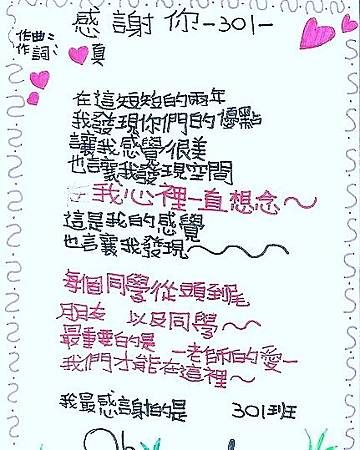 感謝你-301-
作曲:
作詞: 真
在這短短的兩年
我發現你們的優點
讓我感覺很美
也讓我發現空間
在我心裡一直想念～
這是我的感覺
也讓我發現～～～～
每個同學從頭到尾
朋友 以及同學～～
最重要的是 -老師的愛-
我們才能在這裡～
我最感謝的是 301班
Oh